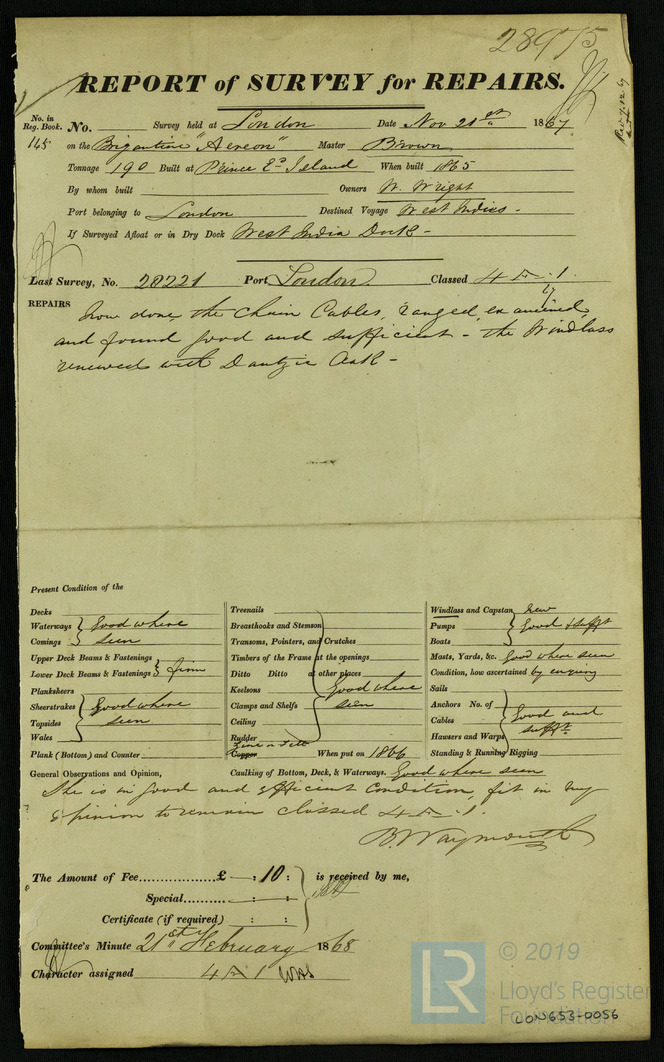 28975
REPORT of SURVEY for REPAIRS.
No. in Reg. Book. No. Survey held at London Date Nov 21st 1867
145 on the Brigantine "Aereon" Master Brown
Tonnage 190 Built at Prince Ed Island When built 1865
By whom built Owners W. Wright
Port belonging to London Destined Voyage West Indies -
If Surveyed Afloat or in Dry Dock West India Dock -
Last Survey, No. 28221 Port London Classed 4 A 1.
67
REPAIRS now done the Chain Cables, ranged, examined,
and found good and sufficient - the Windlass
renewed with Dantzic Oak -
Present Condition of the
Decks
Waterways
Comings
Good where seen
Upper Deck Beams & Fastenings
Lower Deck Beams & Fastenings
firm
Planksheers
Sheerstrakes
Topsides
Wales
Good where seen
Plank (Bottom) and Counter
Treenails
Breasthooks and Stemson
Transoms, Pointers, and Crutches
Timbers of the Frame at the openings
Ditto Ditto at other places
Keelsons
Clamps and Shelfs
Ceiling
Rudder
Good where seen
Copper When put on 1866
Caulking of Bottom, Deck, & Waterways. Good where seen
Windlass and Capstan new
Pumps
Boats
Good & sufft
Masts, Yards, &c. Good where seen
Condition, how ascertained by enquiry
Sails
Anchors No. of
Cables
Hawsers and Warps
Good and sufft
Standing & Running Rigging
General Observations and Opinion,
She is in good and efficient condition, fit in my
opinion to remain classed 4 A 1.
B. Waymouth
The Amount of Fee £ - : 10 : is received by me,
Special - : :
Certificate (if required) : :
Committee's Minute 21st February 1868
Character assigned 4 A 1
© 2019
LR Lloyd's Register
Foundation
LON653-0056